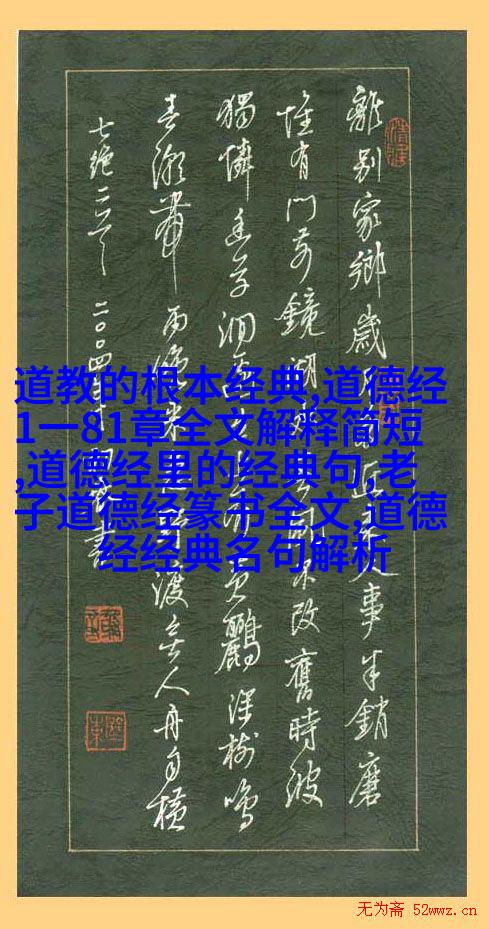 離别家鄉歲月近來人事半銷磨
惟有門前鏡湖不改舊時波
獨憐幽草澗有鸝深樹鳴
春潮帶雨晚來渡無人舟自橫
七绝二首 二〇〇四年 書
道教的根本经典,道德经
1一81章全文解释简短
,道德经里的经典句,老
子道德经篆书全文,道德
经经典名句解析
无为斋 52wwz.cn